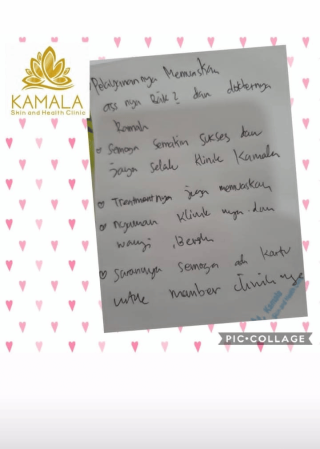 KAMALA
Skin and Health Clinic
Pelayanannya Memuaskan
dan dokternya
Ramah
Semoga semakin sukses dan
jaya selalu klinik Kamala
Treatmentnya juga memuaskan
nyaman klinik nya dan
wangi, Bersih
Sarannya semoga ada kartu
untuk member clinik nya
PIC•COLLAGE